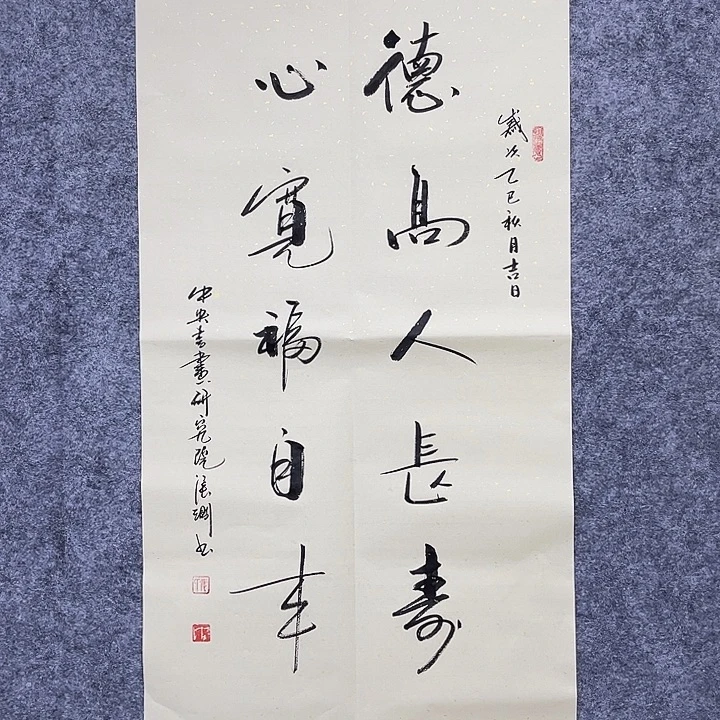 歲次乙巳秋月吉日
德高人長壽
心寬福自来
中央書畫研究院張书